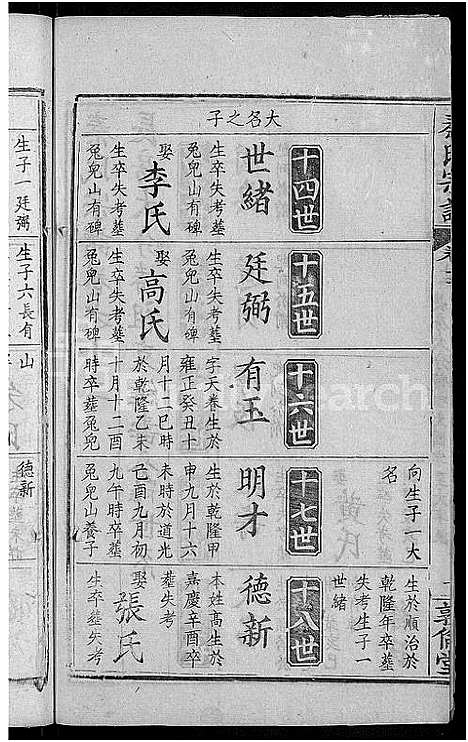 向生子一大
名
生於順治於
乾隆年卒塟
失考生子一
世緒
大名之子
十四世
世緒
生卒失考塟
兔兒山有碑
娶
李氏
生卒失考塟
兔兒山有碑
十五世
廷弼
生卒失考塟
兔兒山有碑
娶
高氏
生卒失考塟
兔兒山有碑
十六世
有玉
字天卷生於
雍正癸丑十
月十二巳時
於乾隆乙未
十月十二酉
時卒塟兔兒
十七世
明才
生於乾隆甲
申九月十六
未時於道光
己酉九月初
九午時卒塟
兔兒山養子
十八世
德新
本姓高生於
嘉慶辛酉卒
塟失考
娶
張氏
生卒塟失考
生子一廷弼
生子六長有
山
德新
敦倫堂